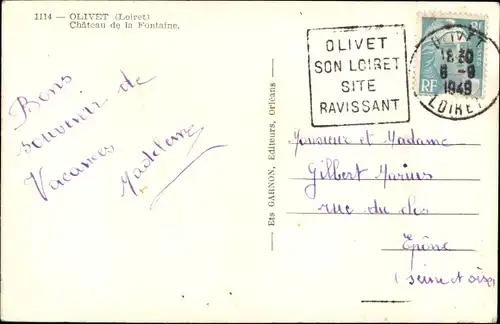 1114 — OLIVET (Loiret)
Château de la Fontaine.
Bons
souvenir de
Vacances
Madeleine
Ets GARNON, Editeurs, Orléans
OLIVET
SON LOIRET
SITE
RAVISSANT
OLIVET
18 30
6 - 9
1949
LOIRET
RF
Monsieur et Madame
Gilbert Marius
rue du clos
Epône
(seine et oise)